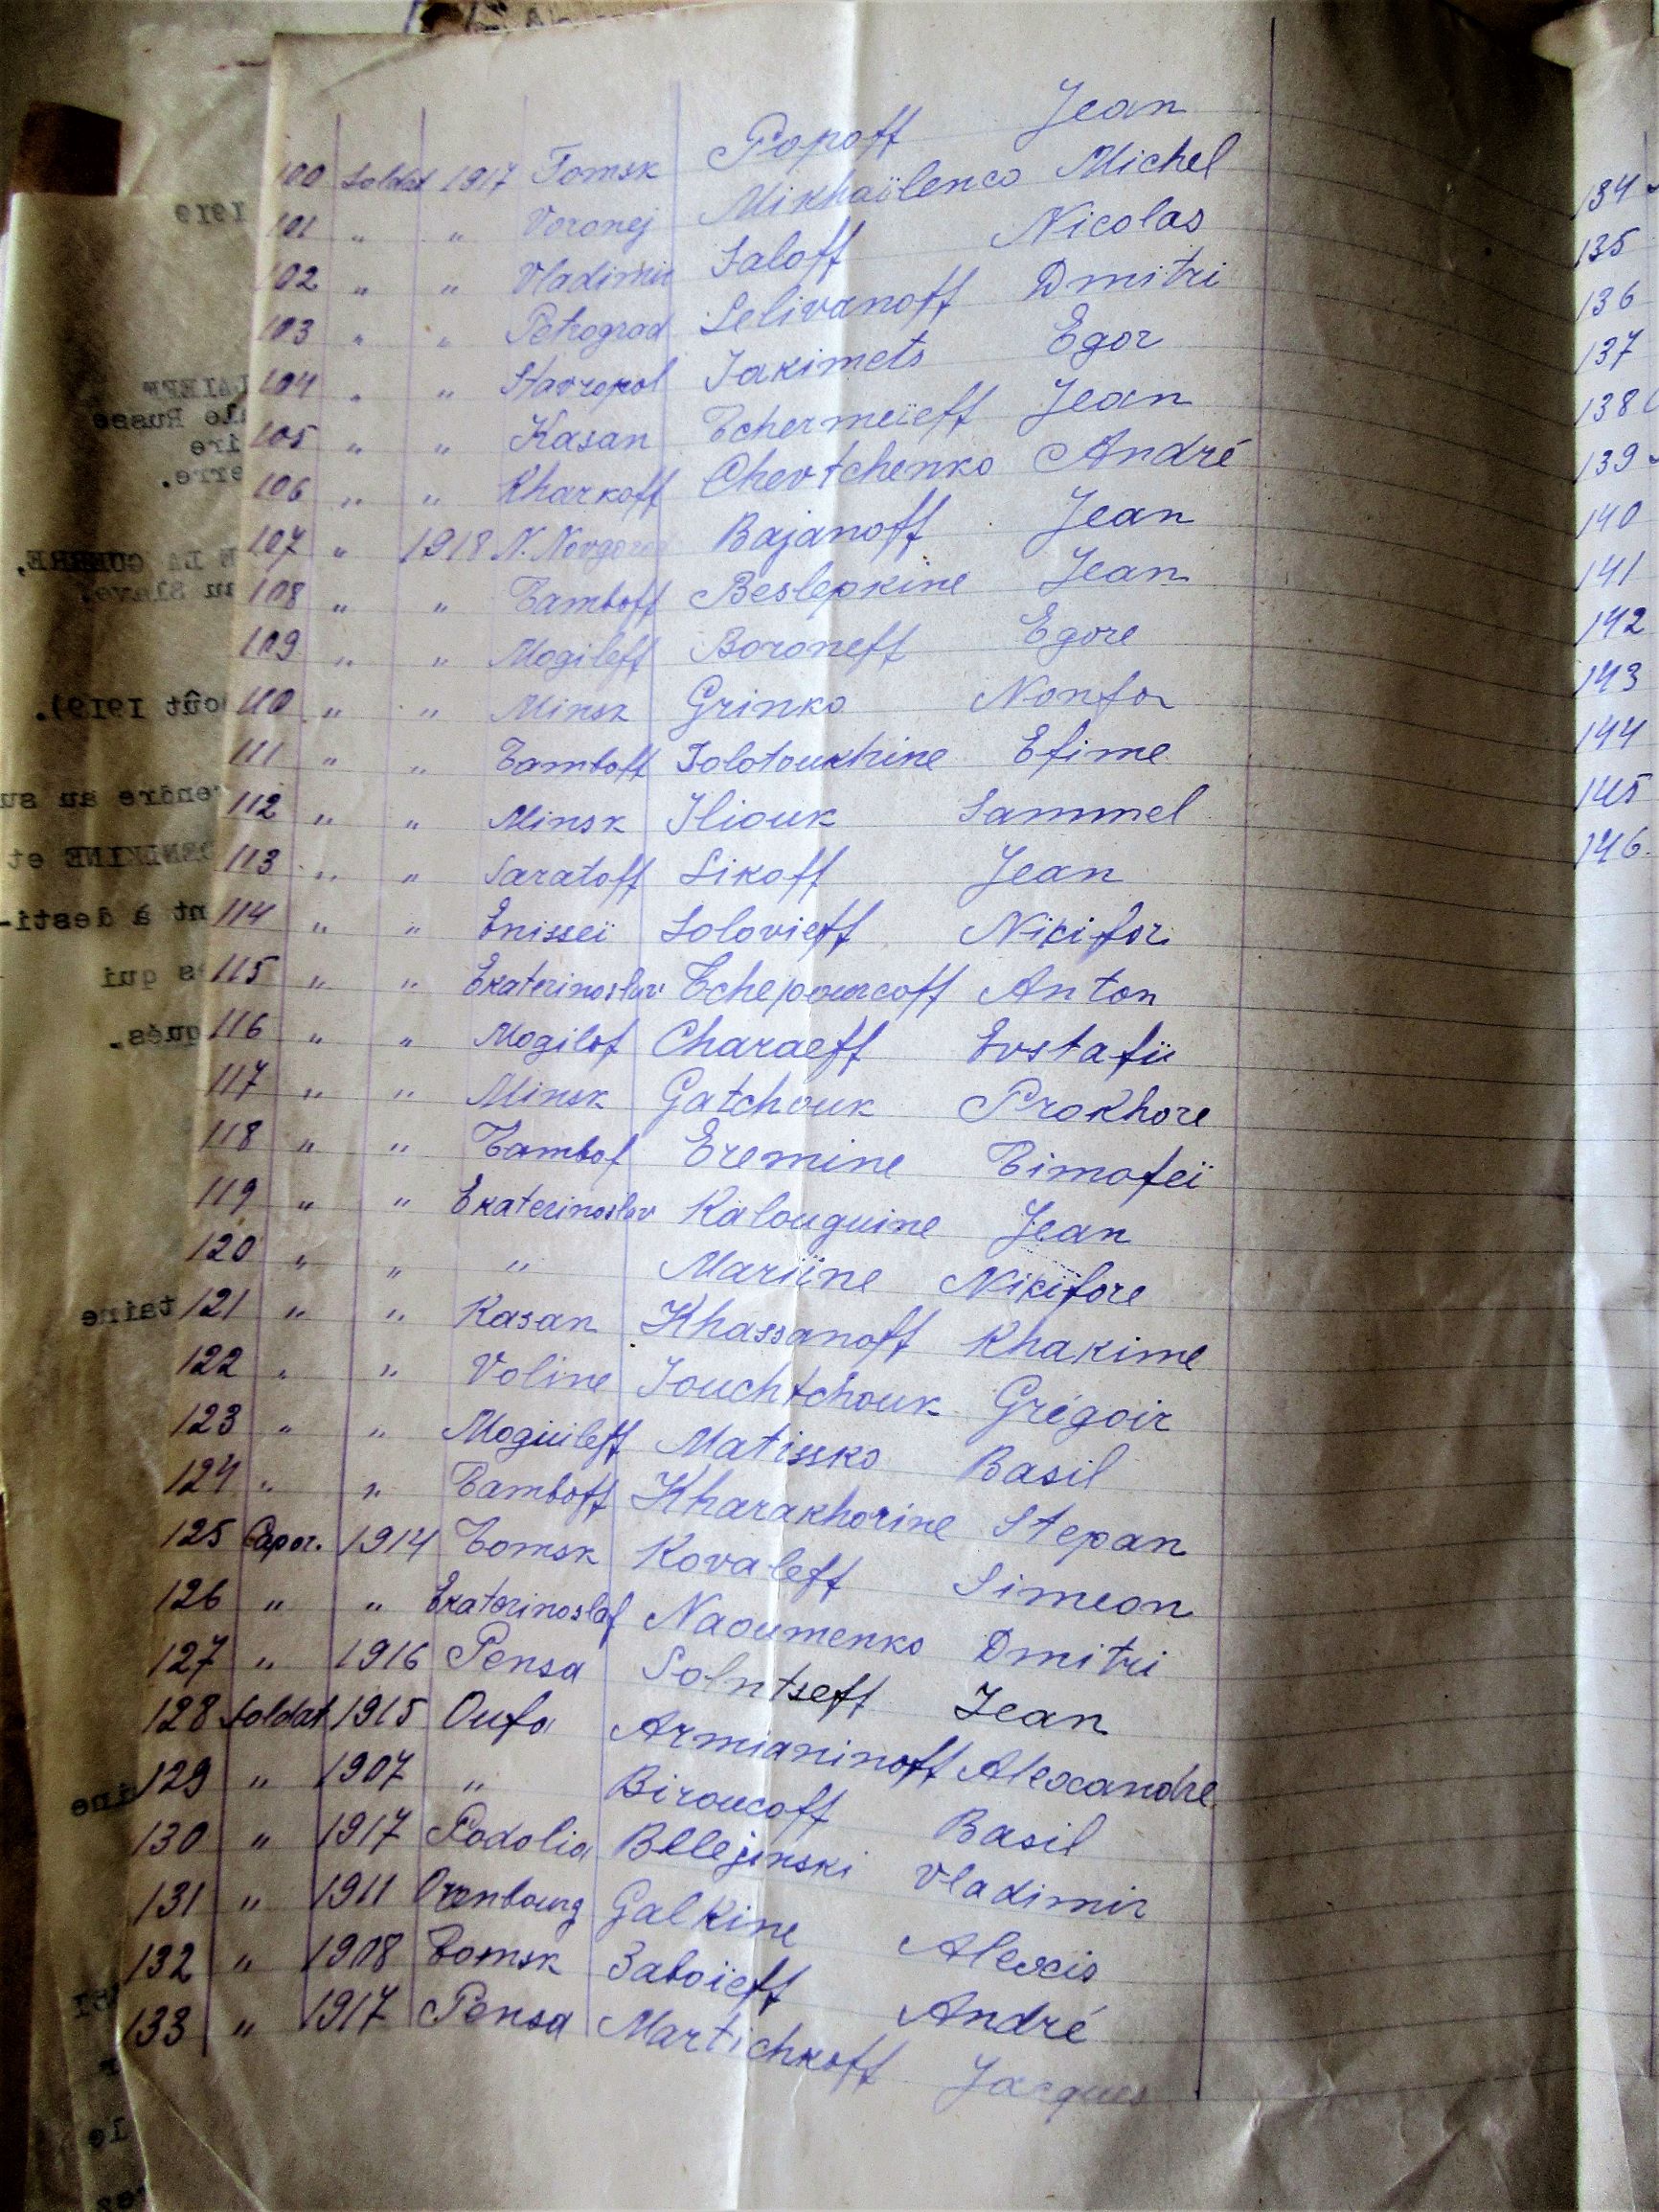 100 Soldat 1917 Tomsk Popoff Jean
101 " " Voronej Mikhaïlenco Michel
102 " " Vladimir Saloff Nicolas
103 " " Petrograd Selivanoff Dmitri
104 " " Stavropol Iakimets Egor
105 " " Kasan Tchermeïeff Jean
106 " " Kharkoff Chevtchenko André
107 " 1918 N. Novgorod Bajanoff Jean
108 " " Tamboff Beslepkine Jean
109 " " Mogileff Boroneff Egore
110 " " Minsk Grinko Nonfor
111 " " Tamboff Solotoukhine Efime
112 " " Minsk Iliouk Sammel
113 " " Saratoff Sikoff Jean
114 " " Enisseï Solovieff Nikifor
115 " " Ekaterinoslav Tchepourcoff Anton
116 " " Mogilof Charaeff Evstafii
117 " " Minsk Gatchouk Prokhore
118 " " Tambof Eremine Timofeï
119 " " Ekaterinoslav Kalouguine Jean
120 " " " Mariine Nikifore
121 " " Kasan Khassanoff Khakime
122 " " Voline Iouchtchouk Grégoir
123 " " Moguileff Matissko Basil
124 " " Tamboff Kharakhorine Stepan
125 Capor. 1914 Tomsk Kovaleff Simeon
126 " " Ekaterinoslaf Naoumenko Dmitri
127 " 1916 Pensa Solntseff Jean
128 Soldat 1915 Oufa Armianinoff Alexandre
129 " 1907 " Biroucoff Basil
130 " 1917 Podolia Bllejinski Vladimir
131 " 1911 Orenbourg Galkine Alexis
132 " 1908 Tomsk Zaboïeff André
133 " 1917 Pensa Martichkoff Jacques
134
135
136
137
138
139
140
141
142
143
144
145
146